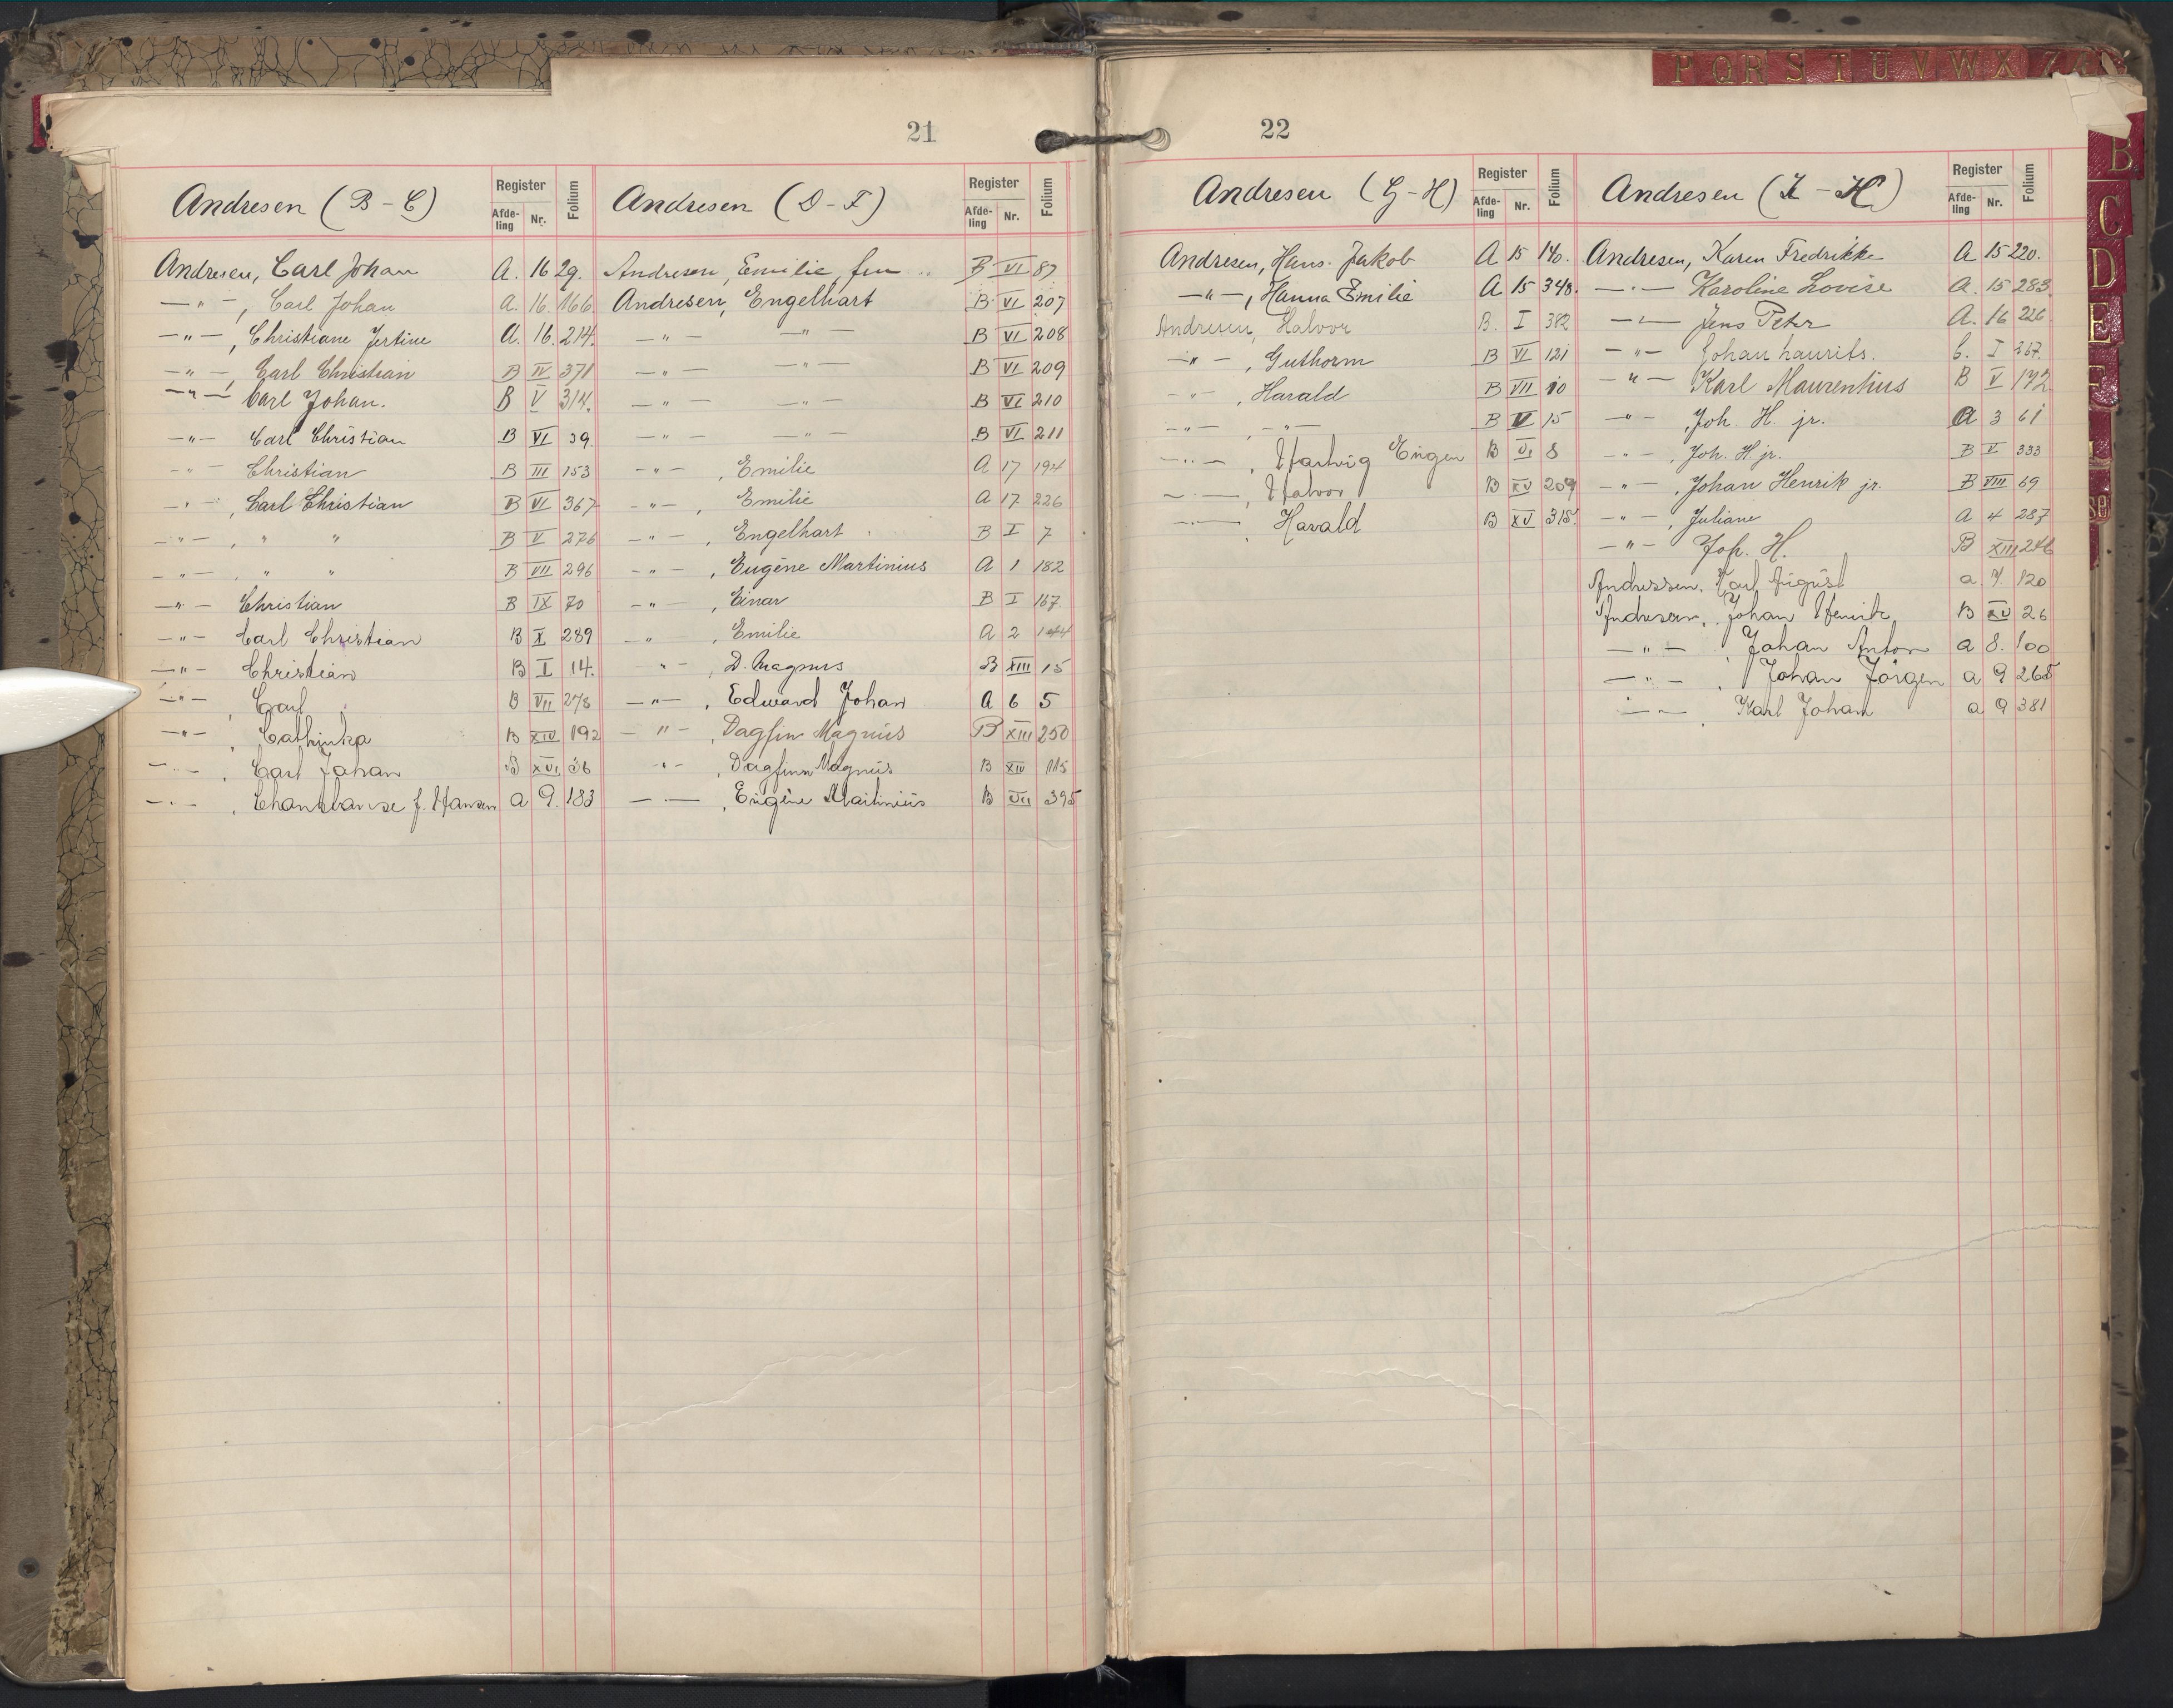 P Q R S T U V W X
21
Andresen (B-C)
Register
Afde-
ling
Nr.
Folium
Andresen, Carl Johan A. 16 29.
—"—, Carl Johan A. 16. 166
—"—, Christiane Jertine A. 16. 214.
—"—, Carl Christian B IV 371
—"— Carl Johan. B V 314.
—"— Carl Christian B VI 39
—"— Christian B III 153
—"—, Carl Christian B VI 367
—"—, " " B V 276
—"—, " " B VII 296
—"— Christian B IX 70
—"— Carl Christian B X 289
—"— Christian B I 14.
—"—, Carl B VII 278
—"—, Cathinka B XIV 192
—"—, Carl Johan B XVI 36
—"—, f. Hansen a 9. 183
Andresen (D-F)
Register
Afde-
ling
Nr.
Folium
Andresen, Emilie, fru B VI 87
Andresen, Engelhart B VI 207
—"— —"— B VI 208
—"— —"— B VI 209
—"— —"— B VI 210
—"— —"— B VI 211
—"—, Emilie A 17 194
—"—, Emilie A 17 226
—"—, Engelhart B I 7
—"—, Eugène Martinius A 1 182
—"—, Einar B I 167
—"—, Emilie A 2 144
—"—, D. Magnus B XIII 15
—"—, Edward Johan A 6 5
—"—, Dagfin Magnus B XIII 250
—"—, Dagfinn Magnus B XIV 115
—"—, Eugène Martinius B VII 395
22
Andresen (G-H)
Register
Afde-
ling
Nr.
Folium
Andresen, Hans Jakob A 15 140.
—"—, Hanna Emilie A 15 348.
Andresen, Halvor B. I 382
—"—, Guthorm B VI 121
—"—, Harald B VII 10
—"—, —"— B V 15
—"—, Hartvig Eugen B VI 8
—"—, Halvor B XV 209
—"—, Harald B XV 315.
Andresen (I-K)
Register
Afde-
ling
Nr.
Folium
Andresen, Karen Fredrikke A 15 220.
—"— Karoline Lovise A. 15 283.
—"— Jens Peter A. 16 226
—"— Johan Laurits. B. I 367.
—"— Karl Maurentius B V 172
—"—, Joh. H. jr. A 3 61
—"—, Joh. H. jr. B V 333
—"—, Johan Henrik jr. B VIII 69
—"—, Juliane A 4 287
—"— Joh. H. B XIII 246
Andressen, Karl August a 7. 120
Andresen, Johan Henrik B XV 26
—"—, Johan Anton a 8. 100
—"—, Johan Jörgen a 9 265
—"—, Karl Johan a 9 381
B
C
D
E
F